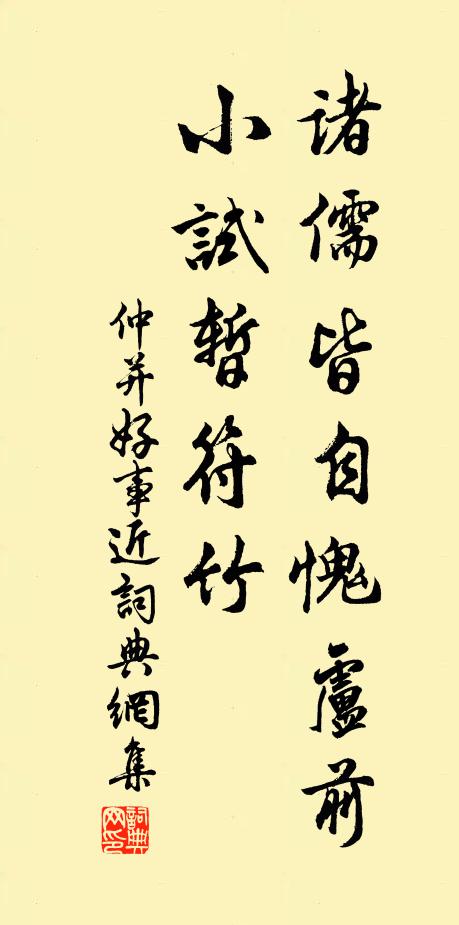 諸儒皆自愧盧前
小試暫符竹
仲并好事近詞典網集
詞典网印